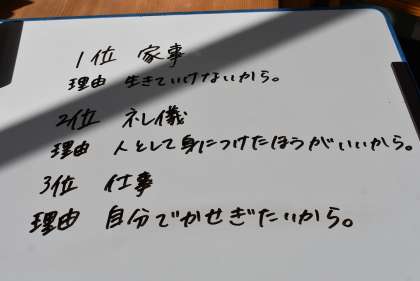 1位 家事
理由 生きていけないから。
2位 礼儀
理由 人として身につけたほうがいいから。
3位 仕事
理由 自分でかせぎたいから。